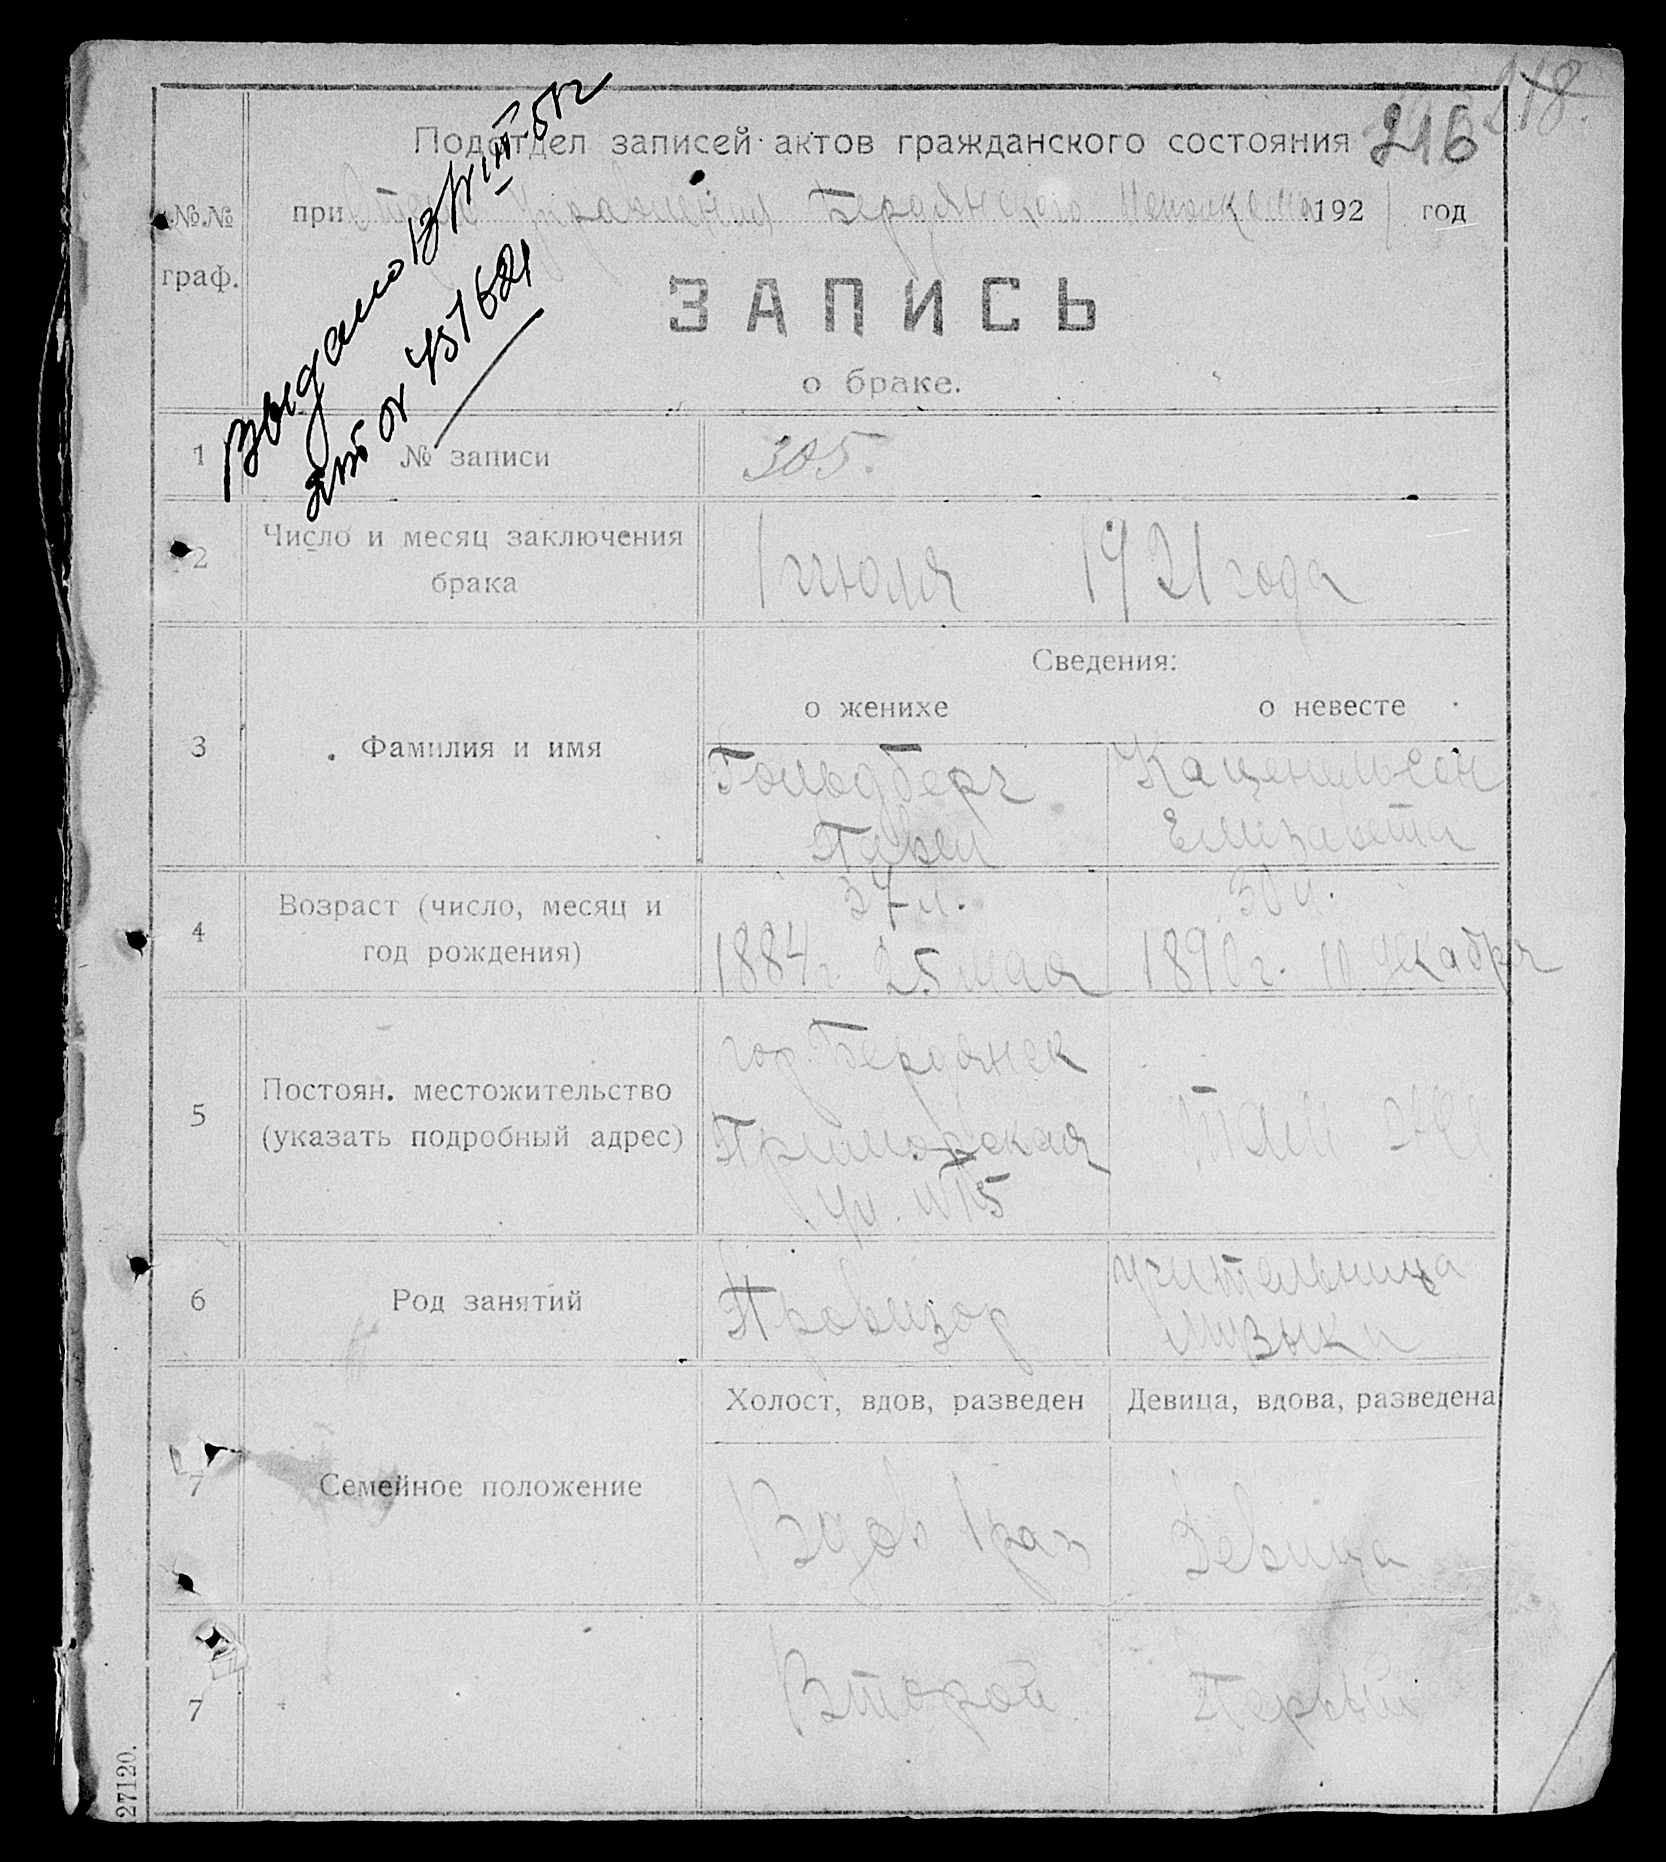 218.
216
Подотдел записей актов гражданского состояния
при Отделе Управления Бердянского Исполкома 1921 год
№№
граф.
ЗАПИСЬ
о браке.
Выдано
451621
1 № записи 305.
2 Число и месяц заключения
брака
1 июля 1921 года
Сведения:
о женихе о невесте
3 Фамилия и имя
Гольдберг Каценельсон
Павел Елизавета
4 Возраст (число, месяц и
год рождения)
37 л. 30 л.
1884 г. 25 мая 1890 г. 10 декабря
5 Постоян. местожительство
(указать подробный адрес)
гор. Бердянск
Приморская там же
ул. №15
6 Род занятий
Провизор учительница
музыки
Холост, вдов, разведен Девица, вдова, разведена
7 Семейное положение
Вдов 1 раз Девица
7 Второй Первый
27120.